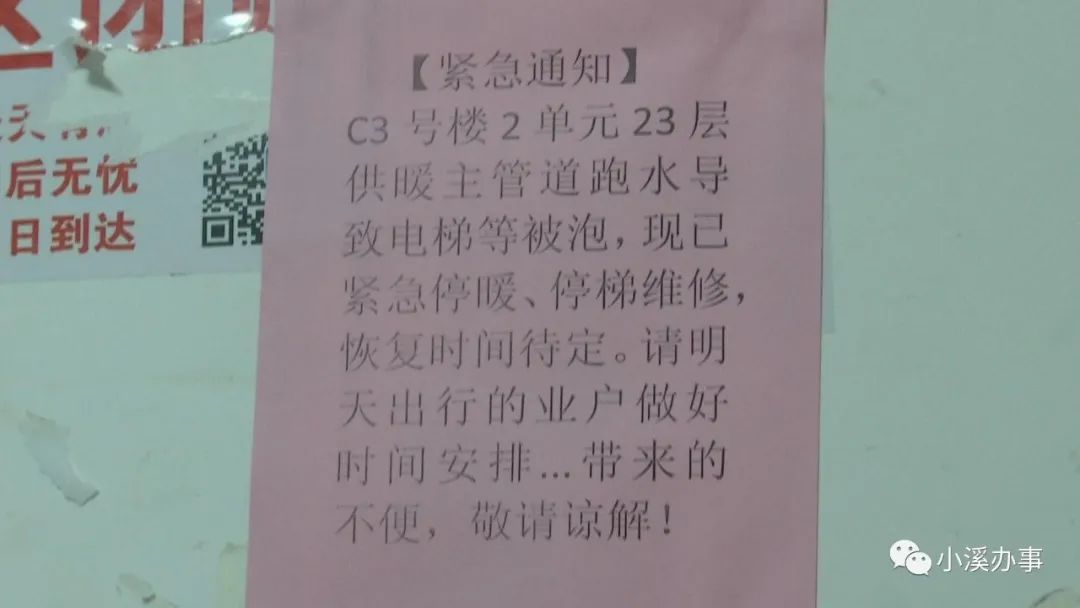 【紧急通知】
C3号楼2单元23层
供暖主管道跑水导
致电梯等被泡，现已
紧急停暖、停梯维修，
恢复时间待定。请明
天出行的业户做好
时间安排...带来的
不便，敬请谅解！
后无忧
日到达
小溪办事